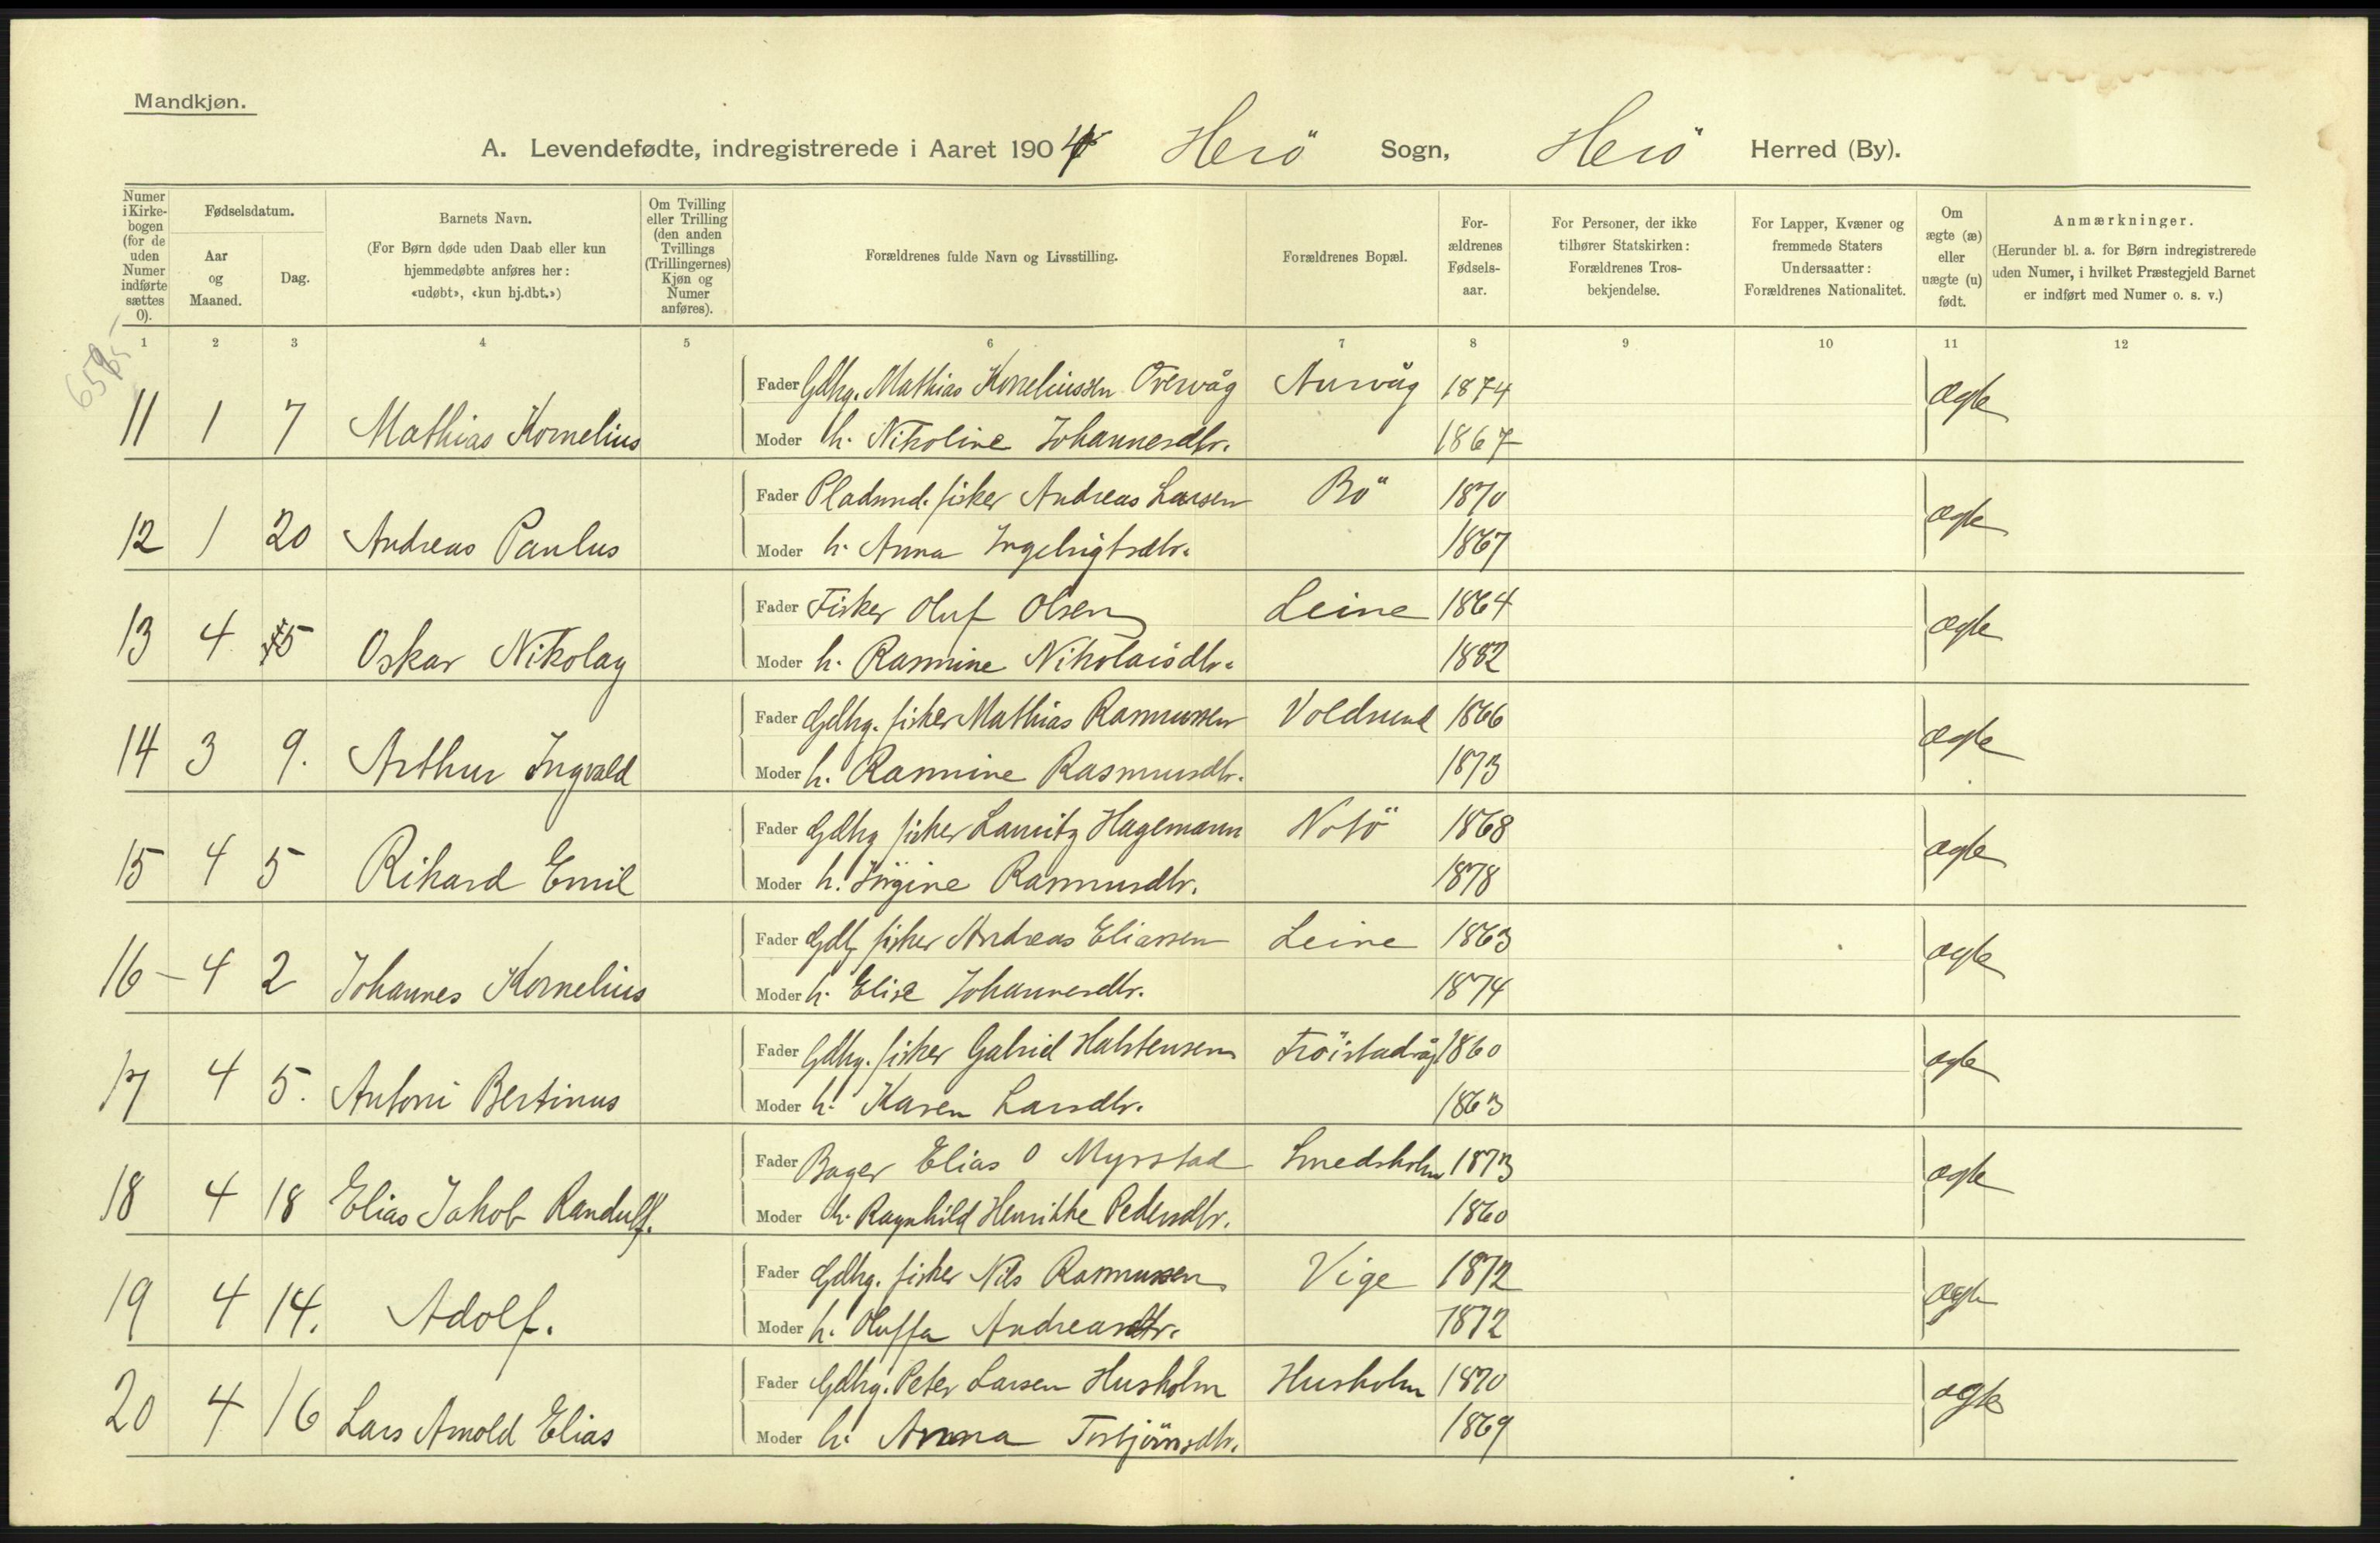 Mandkjøn.
A. Levendefødte, indregistrerede i Aaret 1904 Herö Sogn, Herö Herred (By).
Numer i Kirkebogen (for de uden Numer indførte sættes 0).
Fødselsdatum.
Aar og Maaned.
Dag.
Barnets Navn.
(For Børn døde uden Daab eller kun hjemmedøbte anføres her: «udøbt», «kun hj.dbt.»)
Om Tvilling eller Trilling (den anden Tvillings (Trillingernes) Kjøn og Numer anføres).
Forældrenes fulde Navn og Livsstilling.
Forældrenes Bopæl.
Forældrenes Fødselsaar.
For Personer, der ikke tilhører Statskirken: Forældrenes Trosbekjendelse.
For Lapper, Kvæner og fremmede Staters Undersaatter: Forældrenes Nationalitet.
Om ægte (æ) eller uægte (u) født.
Anmærkninger.
(Herunder bl. a. for Børn indregistrerede uden Numer, i hvilket Præstegjeld Barnet er indført med Numer o. s. v.)
1 2 3 4 5 6 7 8 9 10 11 12
Fader Gdbrg. Mathias Korneliussen Overvåg Aurvåg 1874 ægte
11 1 7 Mathias Kornelius Moder h. Nikoline Johannesdtr. 1867
Fader Pladsmd. fisker Andreas Larsen Bö 1870 ægte
12 1 20 Andreas Paulus Moder h. Anna Ingebrigtsdtr. 1867
Fader Fisker Oluf Olsen Leine 1864 ægte
13 4 5 Oskar Nikolay Moder h. Rasmine Nikolaisdtr. 1882
Fader Gdbrg. fisker Mathias Rasmussen Voldsund 1866 ægte
14 3 9. Arthur Ingvald Moder h. Rasmine Rasmusdtr. 1873
Fader Gdbrg fisker Lauritz Hagemann Notö 1868 ægte
15 4 5 Rikard Emil Moder h. Jörgine Rasmusdtr. 1878
Fader Gdb fisker Andreas Eliassen Leine 1863 ægte
16 - 4 2 Johannes Kornelius Moder h. Elise Johannesdtr. 1874
Fader Gdbrg. fisker Gabriel Halstensen Fröistadvåg 1860 ægte
17 4 5. Antoni Bertinus Moder h. Karen Larsdtr. 1863
Fader Bager Elias O Myrstad Smedsholm 1873 ægte
18 4 18 Elias Jakob Randulf. Moder h. Ragnhild Henrikke Pedersdtr. 1860
Fader Gdbrg. fisker Nils Rasmussen Vige 1872 ægte
19 4 14. Adolf. Moder h. Oluffa Andreasdtr. 1872
Fader Gdbrg. Peter Larsen Husholm Husholm 1870 ægte
20 4 16 Lars Arnold Elias Moder h. Anna Torbjörnsdtr. 1869